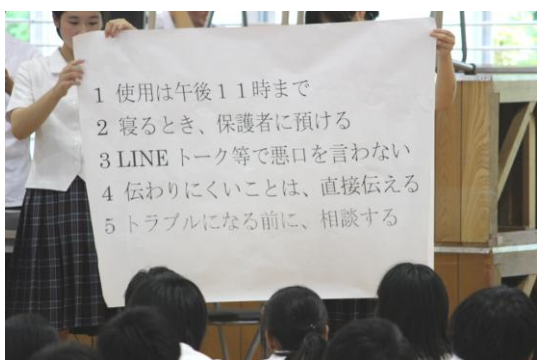 1 使用は午後11時まで
2 寝るとき、保護者に預ける
3 LINE トーク等で悪口を言わない
4 伝わりにくいことは、直接伝える
5 トラブルになる前に、相談する